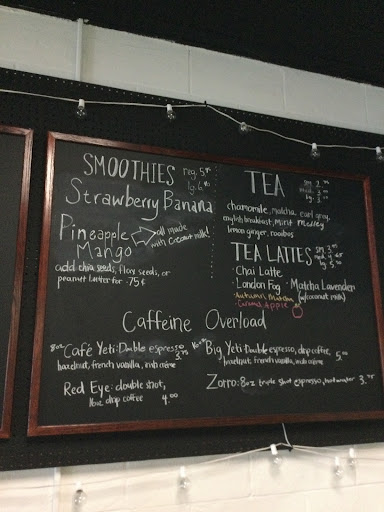 SMOOTHIES reg. 5
lg. 6
Strawberry Banana
Pineapple Mango
all made with coconut milk!
add chia seeds, flax seeds, or
peanut butter for .75¢
TEA
sm 2
med.
lg. 3
chamomile, matcha, earl grey,
english breakfast, mint medley
lemon ginger, rooibos
TEA LATTES sm 3
med 4
lg 5
· Chai Latte
· London Fog · Matcha Lavender
· Autumn Matcha (w/coconut milk)
· Caramel Apple
Caffeine Overload
8oz Café Yeti: Double espresso
hazelnut, french vanilla, irish crème 3.75
Red Eye: double shot,
16oz drip coffee 4.00
16oz Big Yeti: Double espresso, drip coffee,
hazelnut, french vanilla, irish crème 5.00
Zorro: 8oz triple shot espresso, hot water 3.75